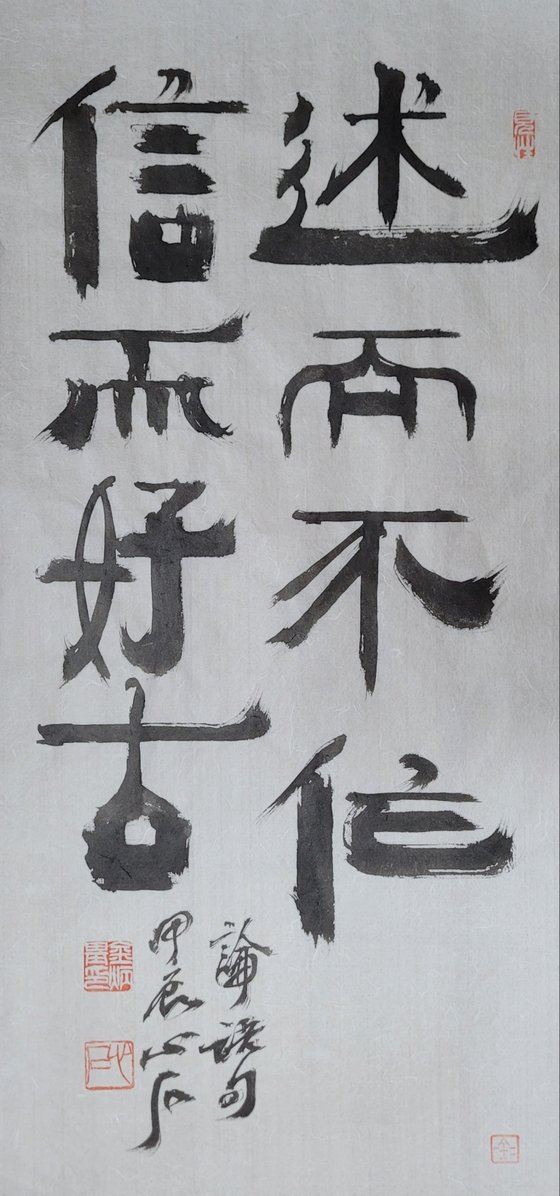 述而不作
信而好古
論語句
甲辰 心石